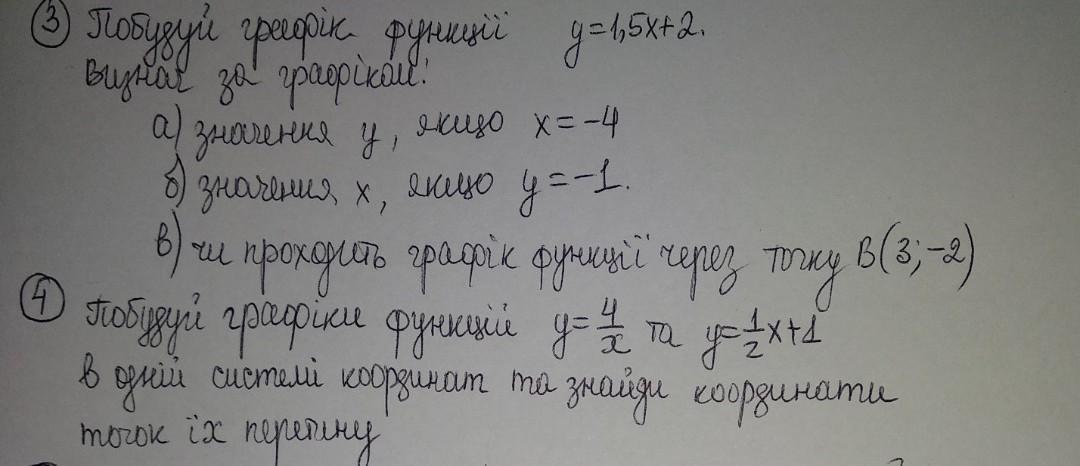 ③ Побудуй графік функції y=1,5x+2.
Визнач за графіком:
а) значення y, якщо x=-4
б) значення x, якщо y=-1.
в) чи проходить графік функції через точку B(3;-2)
④ Побудуй графіки функцій y=4/x та y=1/2x+1
в одній системі координат та знайди координати
точок їх перетину